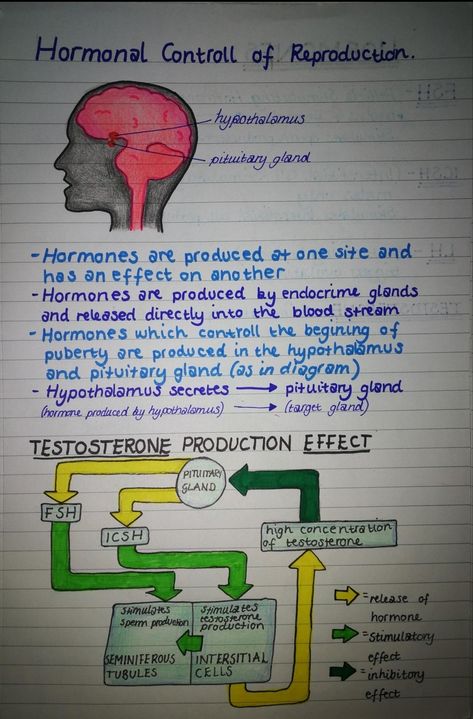 Hormonal Controll of Reproduction.
hypothalamus
pituitary gland
- Hormones are produced at one site and
has an effect on another
- Hormones are produced by endocrime glands
and released directly into the blood stream
- Hormones which controll the begining of
puberty are produced in the hypothalamus
and pituitary gland (as in diagram)
- Hypothalamus secretes → pituitary gland
(hormone produced by hypothalamus) → (target gland)
TESTOSTERONE PRODUCTION EFFECT
PITUITARY
GLAND
FSH
ICSH
high concentration
of testosterone
stimulates
sperm production
SEMINIFEROUS
TUBULES
stimulates
testosterone
production
INTERSITIAL
CELLS
= release of
hormone
= Stimulatory
effect
= inhibitory
effect